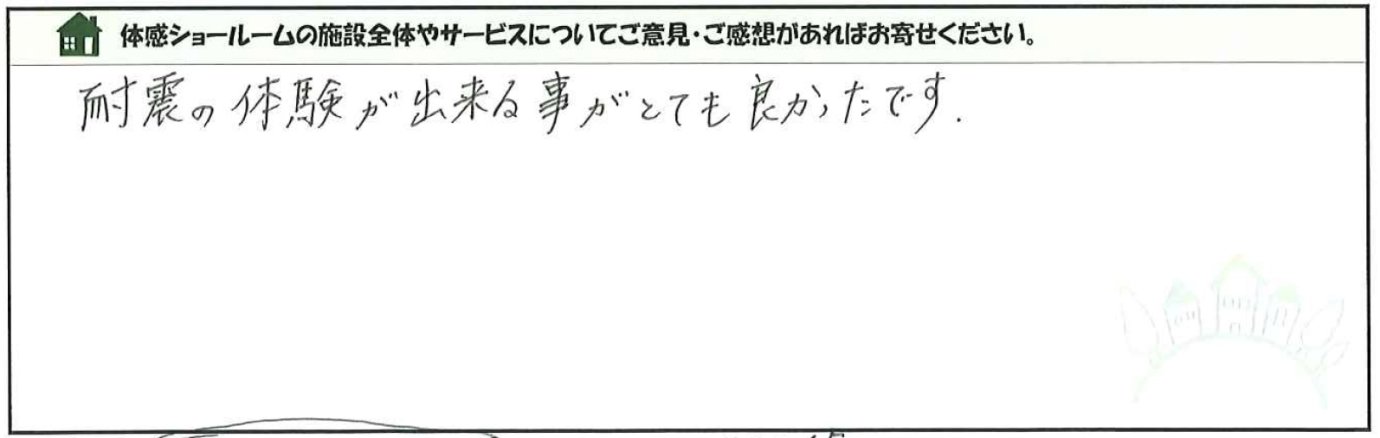 体感ショールームの施設全体やサービスについてご意見・ご感想があればお寄せください。
耐震の体験が出来る事がとても良かったです.